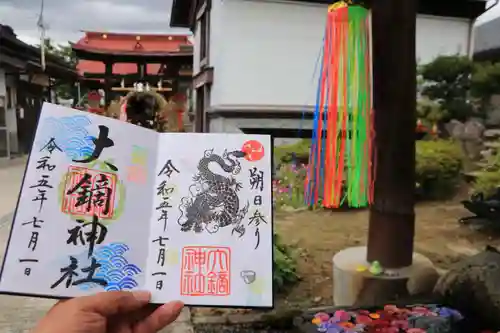 朔日参り
令和五年七月一日
大鏑
神社
大鏑神社
令和五年七月一日